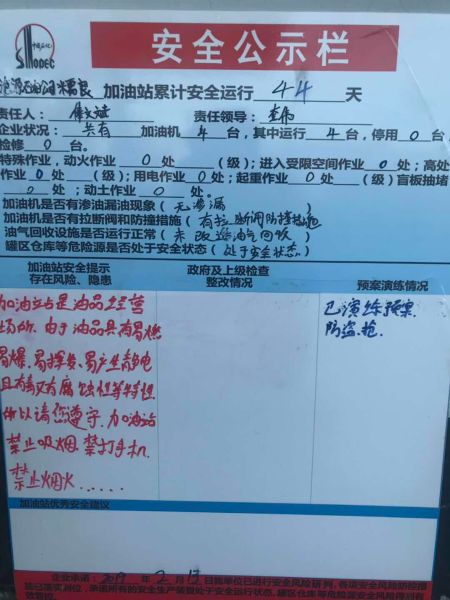 中国石化
SINOPEC
安全公示栏
加油站累计安全运行 44 天
责任人： 责任领导： 李伟
企业状况： 共有 加油机 4 台，其中运行 4 台，停用 0 台，
检修 0 台。
特殊作业，动火作业 0 处 （级）；进入受限空间作业 0 处；高处
作业 0 处 （级）；用电作业 0 处；起重作业 0 处 （级）盲板抽堵
0 处；动土作业 0 处。
加油机是否有渗油漏油现象（ 无渗漏 ）
加油机是否有拉断阀和防撞措施（ 有拉断阀防撞措施
油气回收设施是否运行正常（ 未改造油气回收 ）
罐区仓库等危险源是否处于安全状态（ 处于安全状态 ）
加油站安全提示
存在风险、隐患
政府及上级检查
整改情况
预案演练情况
加油站是油品经营
场所．由于油品具有易燃
易爆．易挥发、易产生静电
且有毒又有腐蚀性等特性
所以请您遵守．加油站
禁止吸烟．禁打手机．
禁止烟火……
已演练预案
防盗．抢．
加油站优秀安全建议
企业承诺： 2019 年 2 月 13 日我单位已进行安全风险研判，各项安全风险防控措
施已落实到位，承诺所有的安全生产装置处于安全运行状态，罐区仓库等危险源安全风险得到有效
管控。